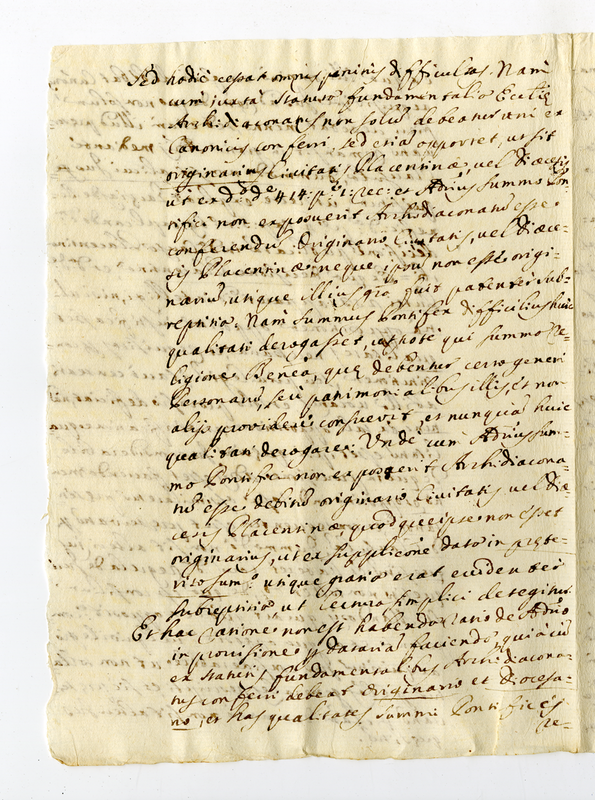 Sed hodie cessat omnis penitus difficultas. Nam
cum juxta statuta fundamentalia Ecclię
Archidiaconatus non solũ debeatur uni ex
Canonicis conferri, sed etiã oportet, ut sit
originarius Civitatis Placentinæ, vel Diæcesis
ut ex d.º d.º de 414. p.ª rec: et Adrius summo Pon-
tifici non exposuerit Archidiaconatũ esse
conferendũ Originario Civitatis, vel Diæce-
sis Placentinæ, neque ipse non esse origi-
nariũ, utique illius gr̃a fuit patenter sub-
reptitia. Nam summus Pontifex difficilius huic
qualitati derogasset, utpote qui summo Re-
ligione Benea, quę debentur certo generi
Personarũ, seu patrimonialibus illis, et non
alijs providere consuevit, et nunquã huic
qualitati derogare. Unde cum Adrius sum-
mo Pontifici non exposuerit Archidiacona-
tũ esse debitũ originario Civitatis vel Diæ-
cesis Placentinæ, quodque ipse non esset
originarius, ut ex supplicõne dato in præte-
rito sum.º utique gratia erat, eidem
subreptitia, ut lectura simplici detegitur.
Et hac ratione non est habenda ratio de Adrio
in provisione p Datariã faciendo, quia cũ
ex statutis fundamentalibus Archidiacona-
tus conferri debeat originario et diocesa-
no, et has qualitates summi Pontifices
re-